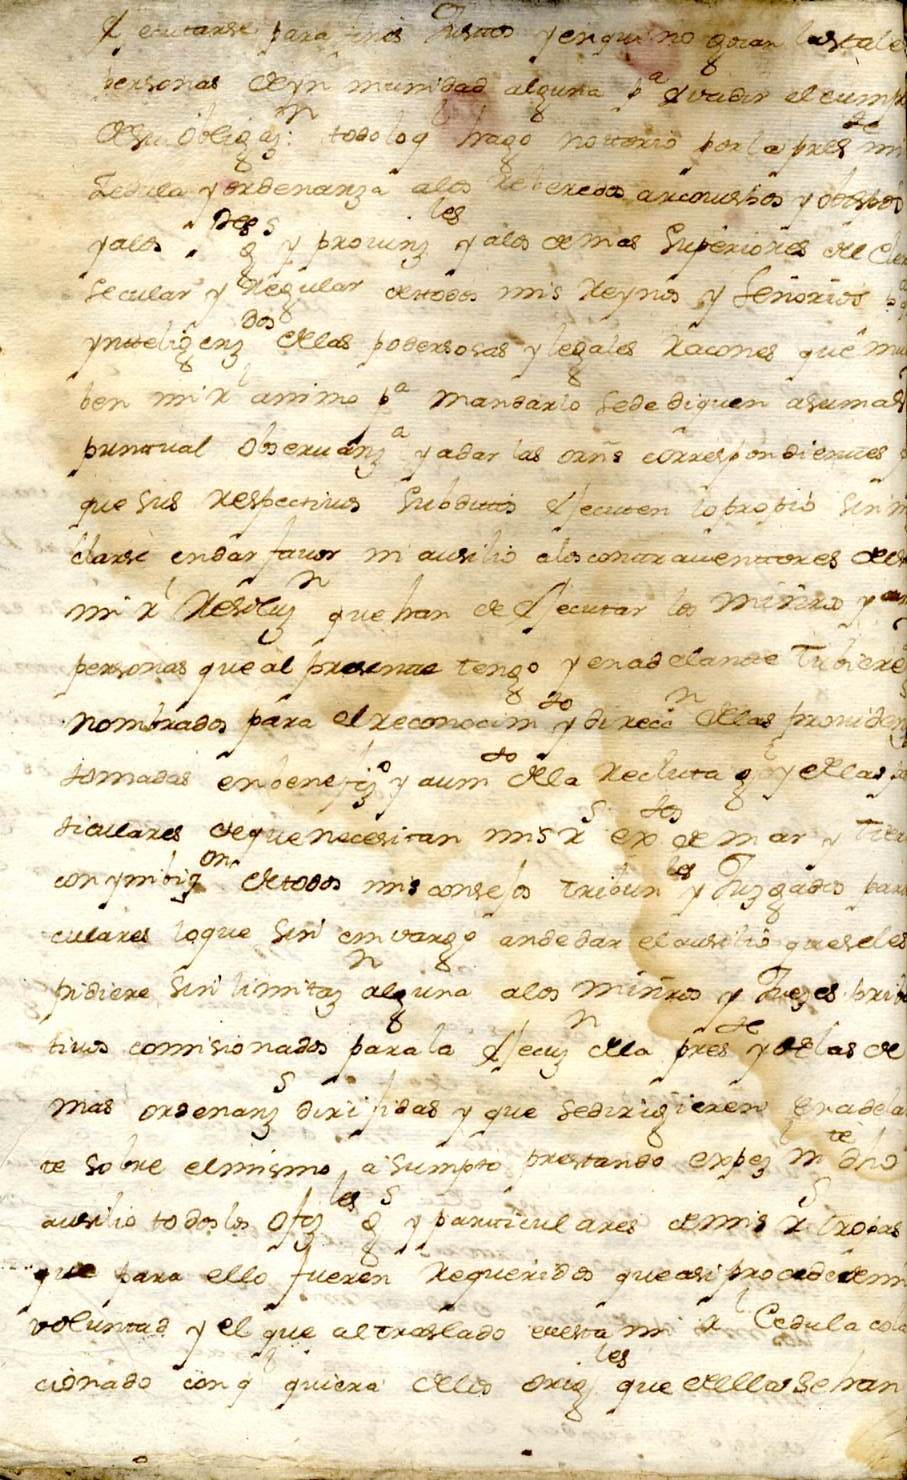 Executarse para fines Justos y enque no gozan las tale
personas de yn munidad alguna pª Evadir el cump
desu obligazn todo loq hago nottorio por la preste mi
Zedula y ordenanza alos Reberedos arcovispos y obispos
yalos Dees gs y provinzles y alos demas Superiores del Cler
Secular y Regular de todos mis Reynos y Señorios pª q
ynteligenzdos dellas poderosas y legales Racones que mue
ben mi Rl animo pª mandarlo se dediquen asu mas
puntual observanzª y adar las orñs correspondientes p
que sus respectivos Subditos Ejecuten lo propio sin m
clarse endar favor ni ausilio alos contraventtores dest
mi Rl Resoluzn que han de Ejecutar los Miñros y
personas que al presente tengo y en adelante Tubiere
nombrados para el reconocimto y direccn dellas providenz
tomadas en benefizo y aumto della Recluta g y dellas pa
ticulares de que necesitan mis Rs extos de mar y Tier
con ynibizon de todos mis consejos tribunles y Juzgados parti
culares loque sin emvargo an de dar el ausilio que seles
pidiere sin limitazn alguna alos Miñros y Juezes priba
tivos comisionados para la Ejecuzn della preste y de las de
mas ordenanzs dirijidas y que se dirigieren en adelan
te sobre el mismo asumpto prestando expezmte dho
ausilio todos los ofizles gs y particulares de mis Rs tropas
que para ello fueren Requeridos que asi procede de mi
voluntad y el que al traslado desta mi Rl Cedula cola
cionado con q quiera dellos origles que della se han